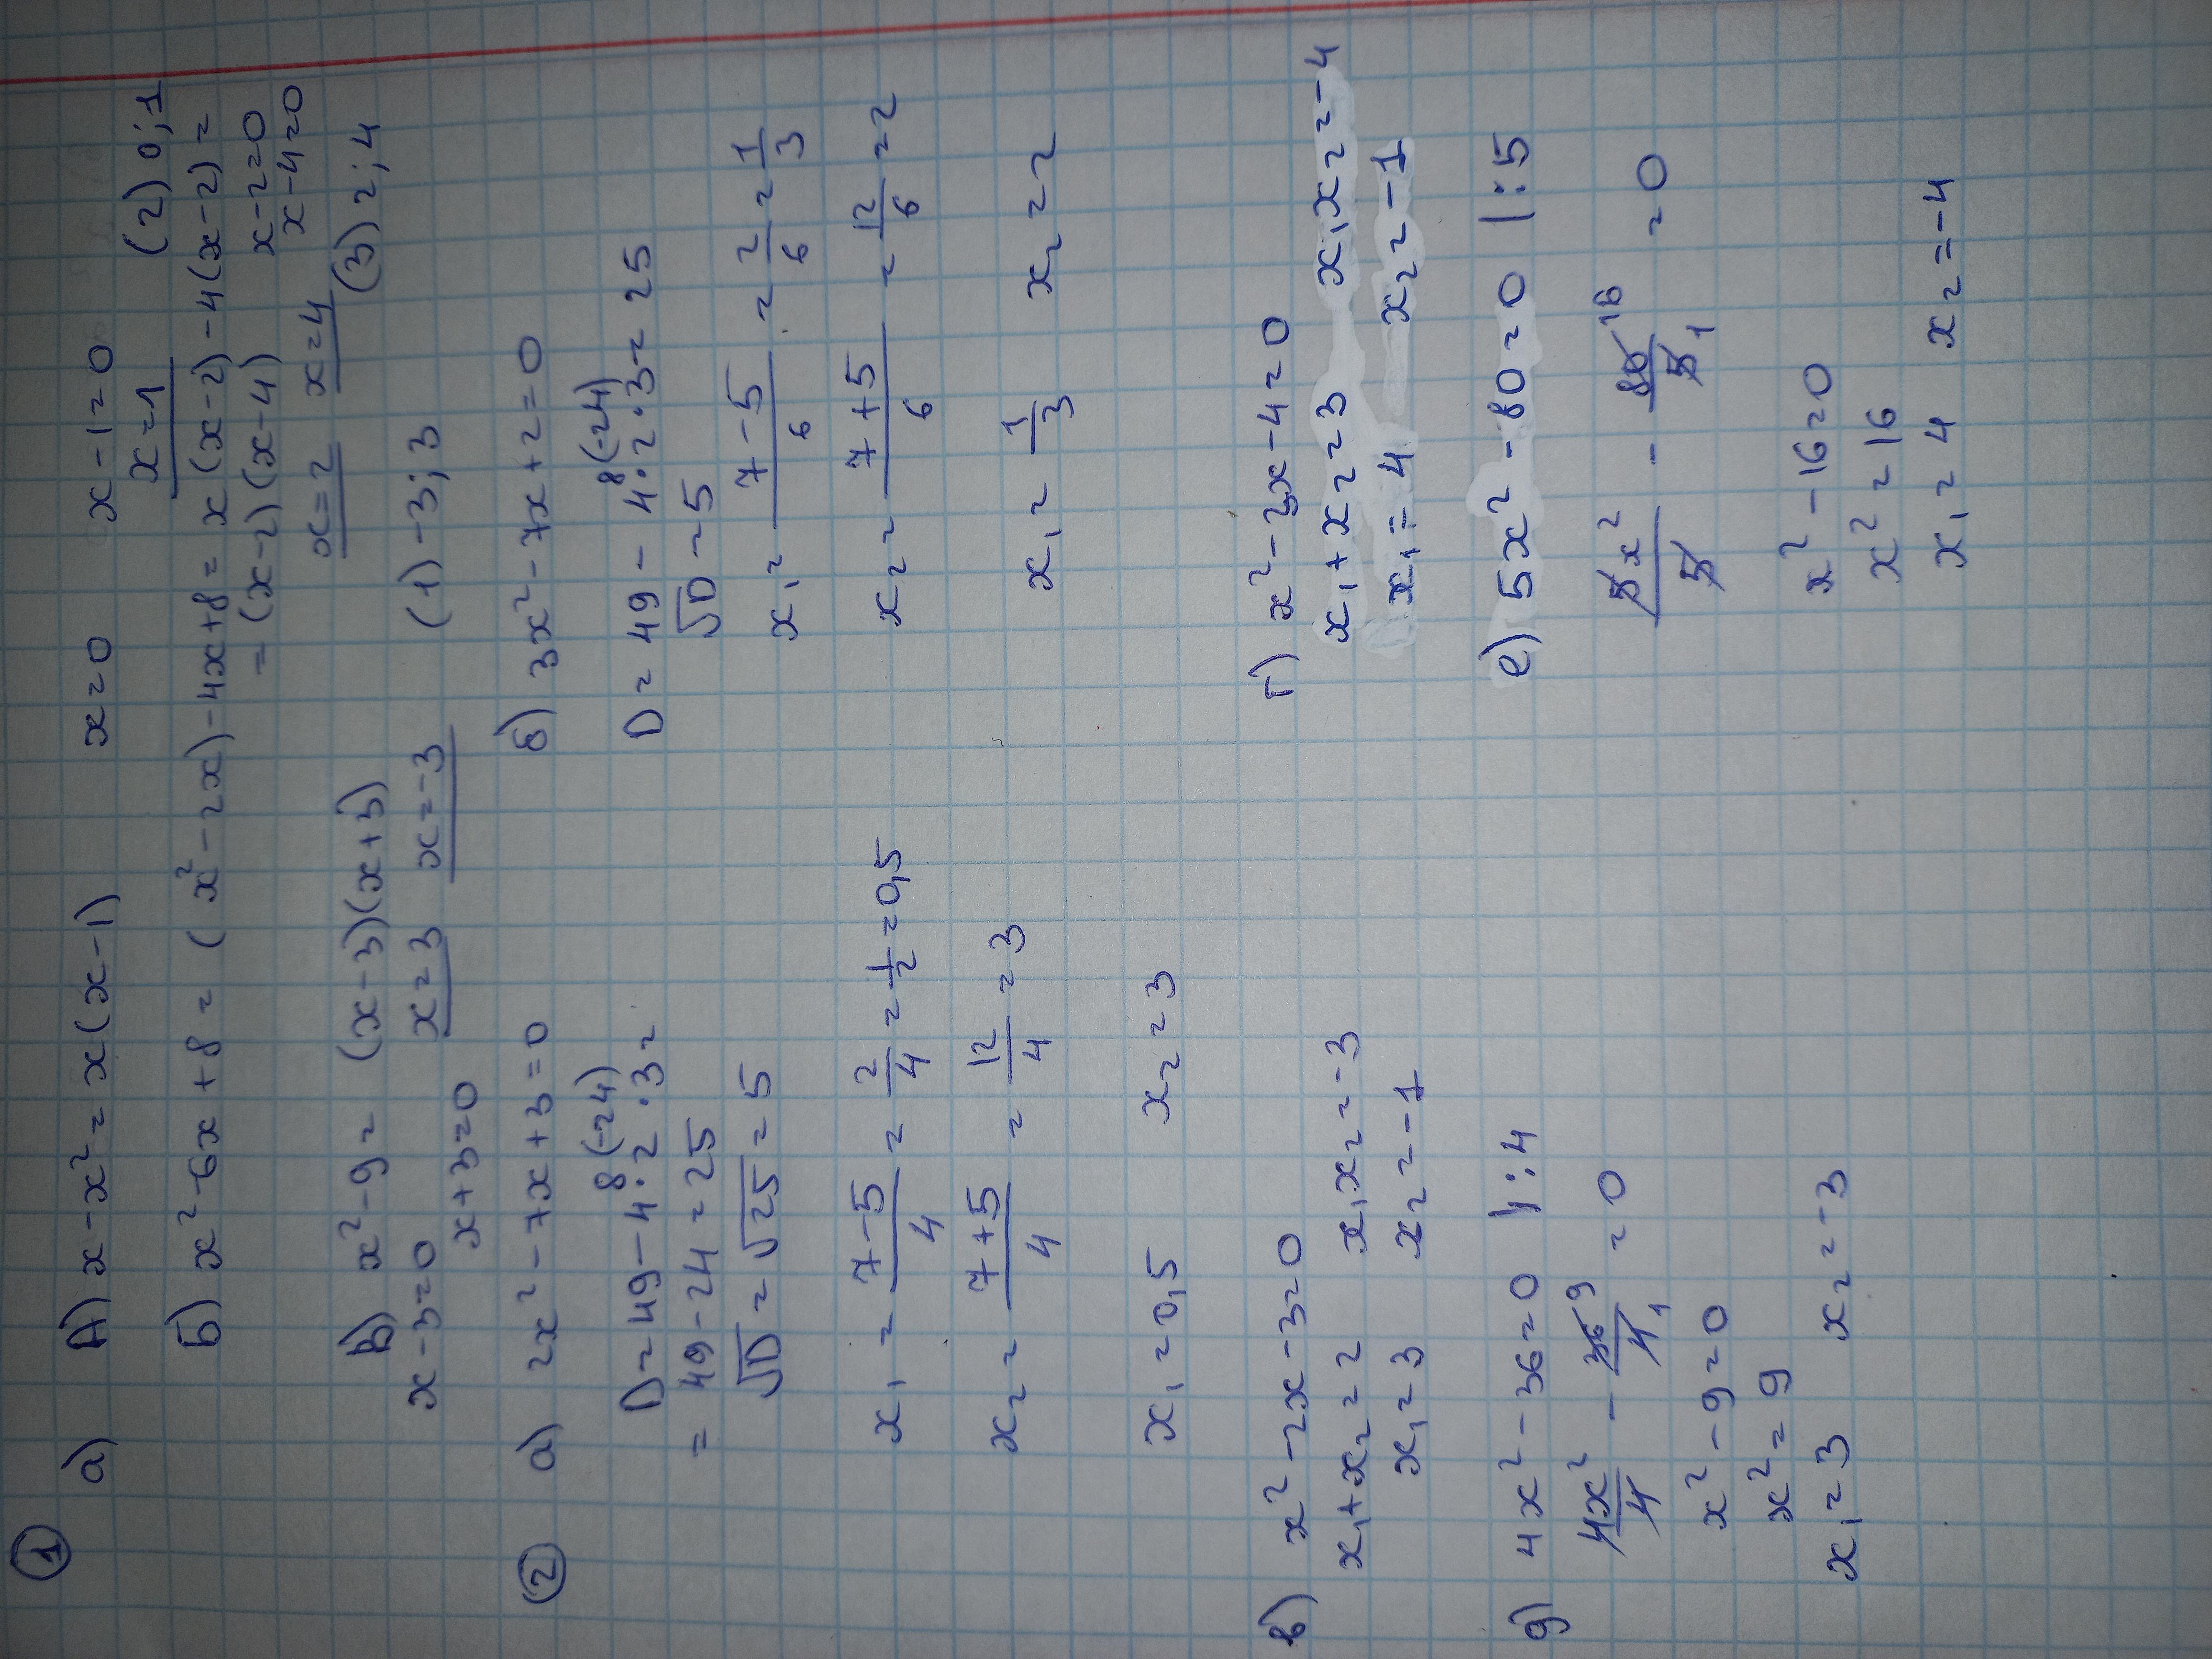 ①
а) А) x - x² = x(x-1) x=0 x-1=0
x=1 (2) 0; 1
Б) x² - 6x + 8 = (x² - 2x) - 4x + 8 = x(x-2) - 4(x-2) =
= (x-2)(x-4) x-2=0
x-4=0
x=2 x=4
В) x² - 9 = (x-3)(x+3) (3) 2; 4
x-3=0 x=3 x=-3 (1) -3; 3
x+3=0
② а) 2x² - 7x + 3 = 0
D = 49 - 4·2·3 =
8 (-24)
= 49 - 24 = 25
√D = √25 = 5
x₁ = (7-5)/4 = 2/4 = 1/2 = 0,5
x₂ = (7+5)/4 = 12/4 = 3
x₁ = 0,5 x₂ = 3
б) 3x² - 7x + 2 = 0
8 (-24)
D = 49 - 4·2·3 = 25
√D = 5
x₁ = (7-5)/6 = 2/6 = 1/3
x₂ = (7+5)/6 = 12/6 = 2
x₁ = 1/3 x₂ = 2
в) x² - 2x - 3 = 0
x₁ + x₂ = 2 x₁x₂ = -3
x₁ = 3 x₂ = -1
г) x² - 3x - 4 = 0
x₁ + x₂ = 3 x₁x₂ = -4
x₁ = 4 x₂ = -1
д) 4x² - 36 = 0 |:4
4x²/4 - 36/4 = 0
9
1
x² - 9 = 0
x² = 9
x₁ = 3 x₂ = -3
е) 5x² - 80 = 0 |:5
5x²/5 - 80/5 = 0
16
1
x² - 16 = 0
x² = 16
x₁ = 4 x₂ = -4